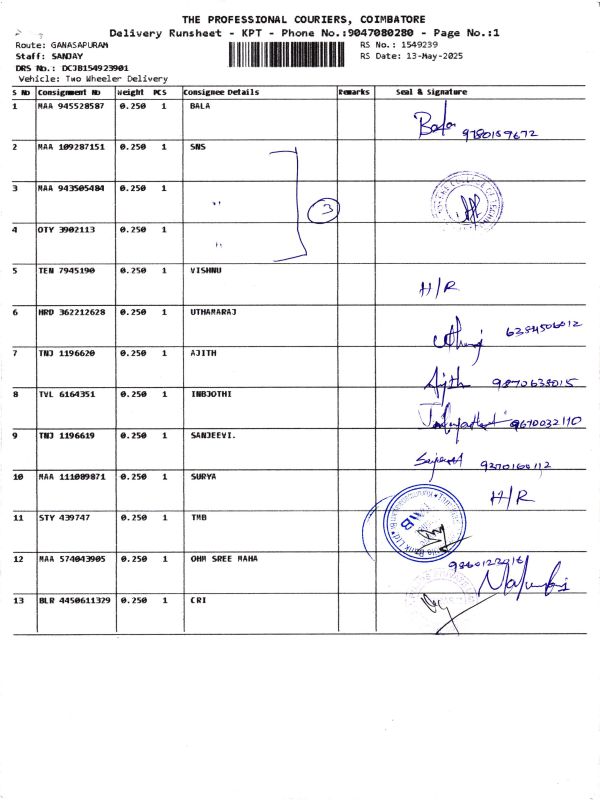 THE PROFESSIONAL COURIERS, COIMBATORE
Delivery Runsheet - KPT - Phone No.:9047080280 - Page No.:1
Route: GANASAPURAM RS No.: 1549239
Staff: SANJAY RS Date: 13-May-2025
DRS No.: DCJB154923901
Vehicle: Two Wheeler Delivery
S No Consignment No Weight PCS Consignee Details Remarks Seal & Signature
1 MAA 945528587 0.250 1 BALA Bala 9780159672
2 MAA 109287151 0.250 1 SNS
3 MAA 943505484 0.250 1 " 3
4 OTY 3902113 0.250 1 "
5 TEN 7945190 0.250 1 VISHNU H/R
6 HRD 362212628 0.250 1 UTHAMARAJ 6384506012
7 TNJ 1196620 0.250 1 AJITH Ajith 9870638015
8 TVL 6164351 0.250 1 INBJOTHI 9670032110
9 TNJ 1196619 0.250 1 SANJEEVI. 9270160112
10 MAA 111089871 0.250 1 SURYA H/R
11 STY 439747 0.250 1 TMB TMB
12 MAA 574043905 0.250 1 OHM SREE MAHA
13 BLR 4450611329 0.250 1 CRI